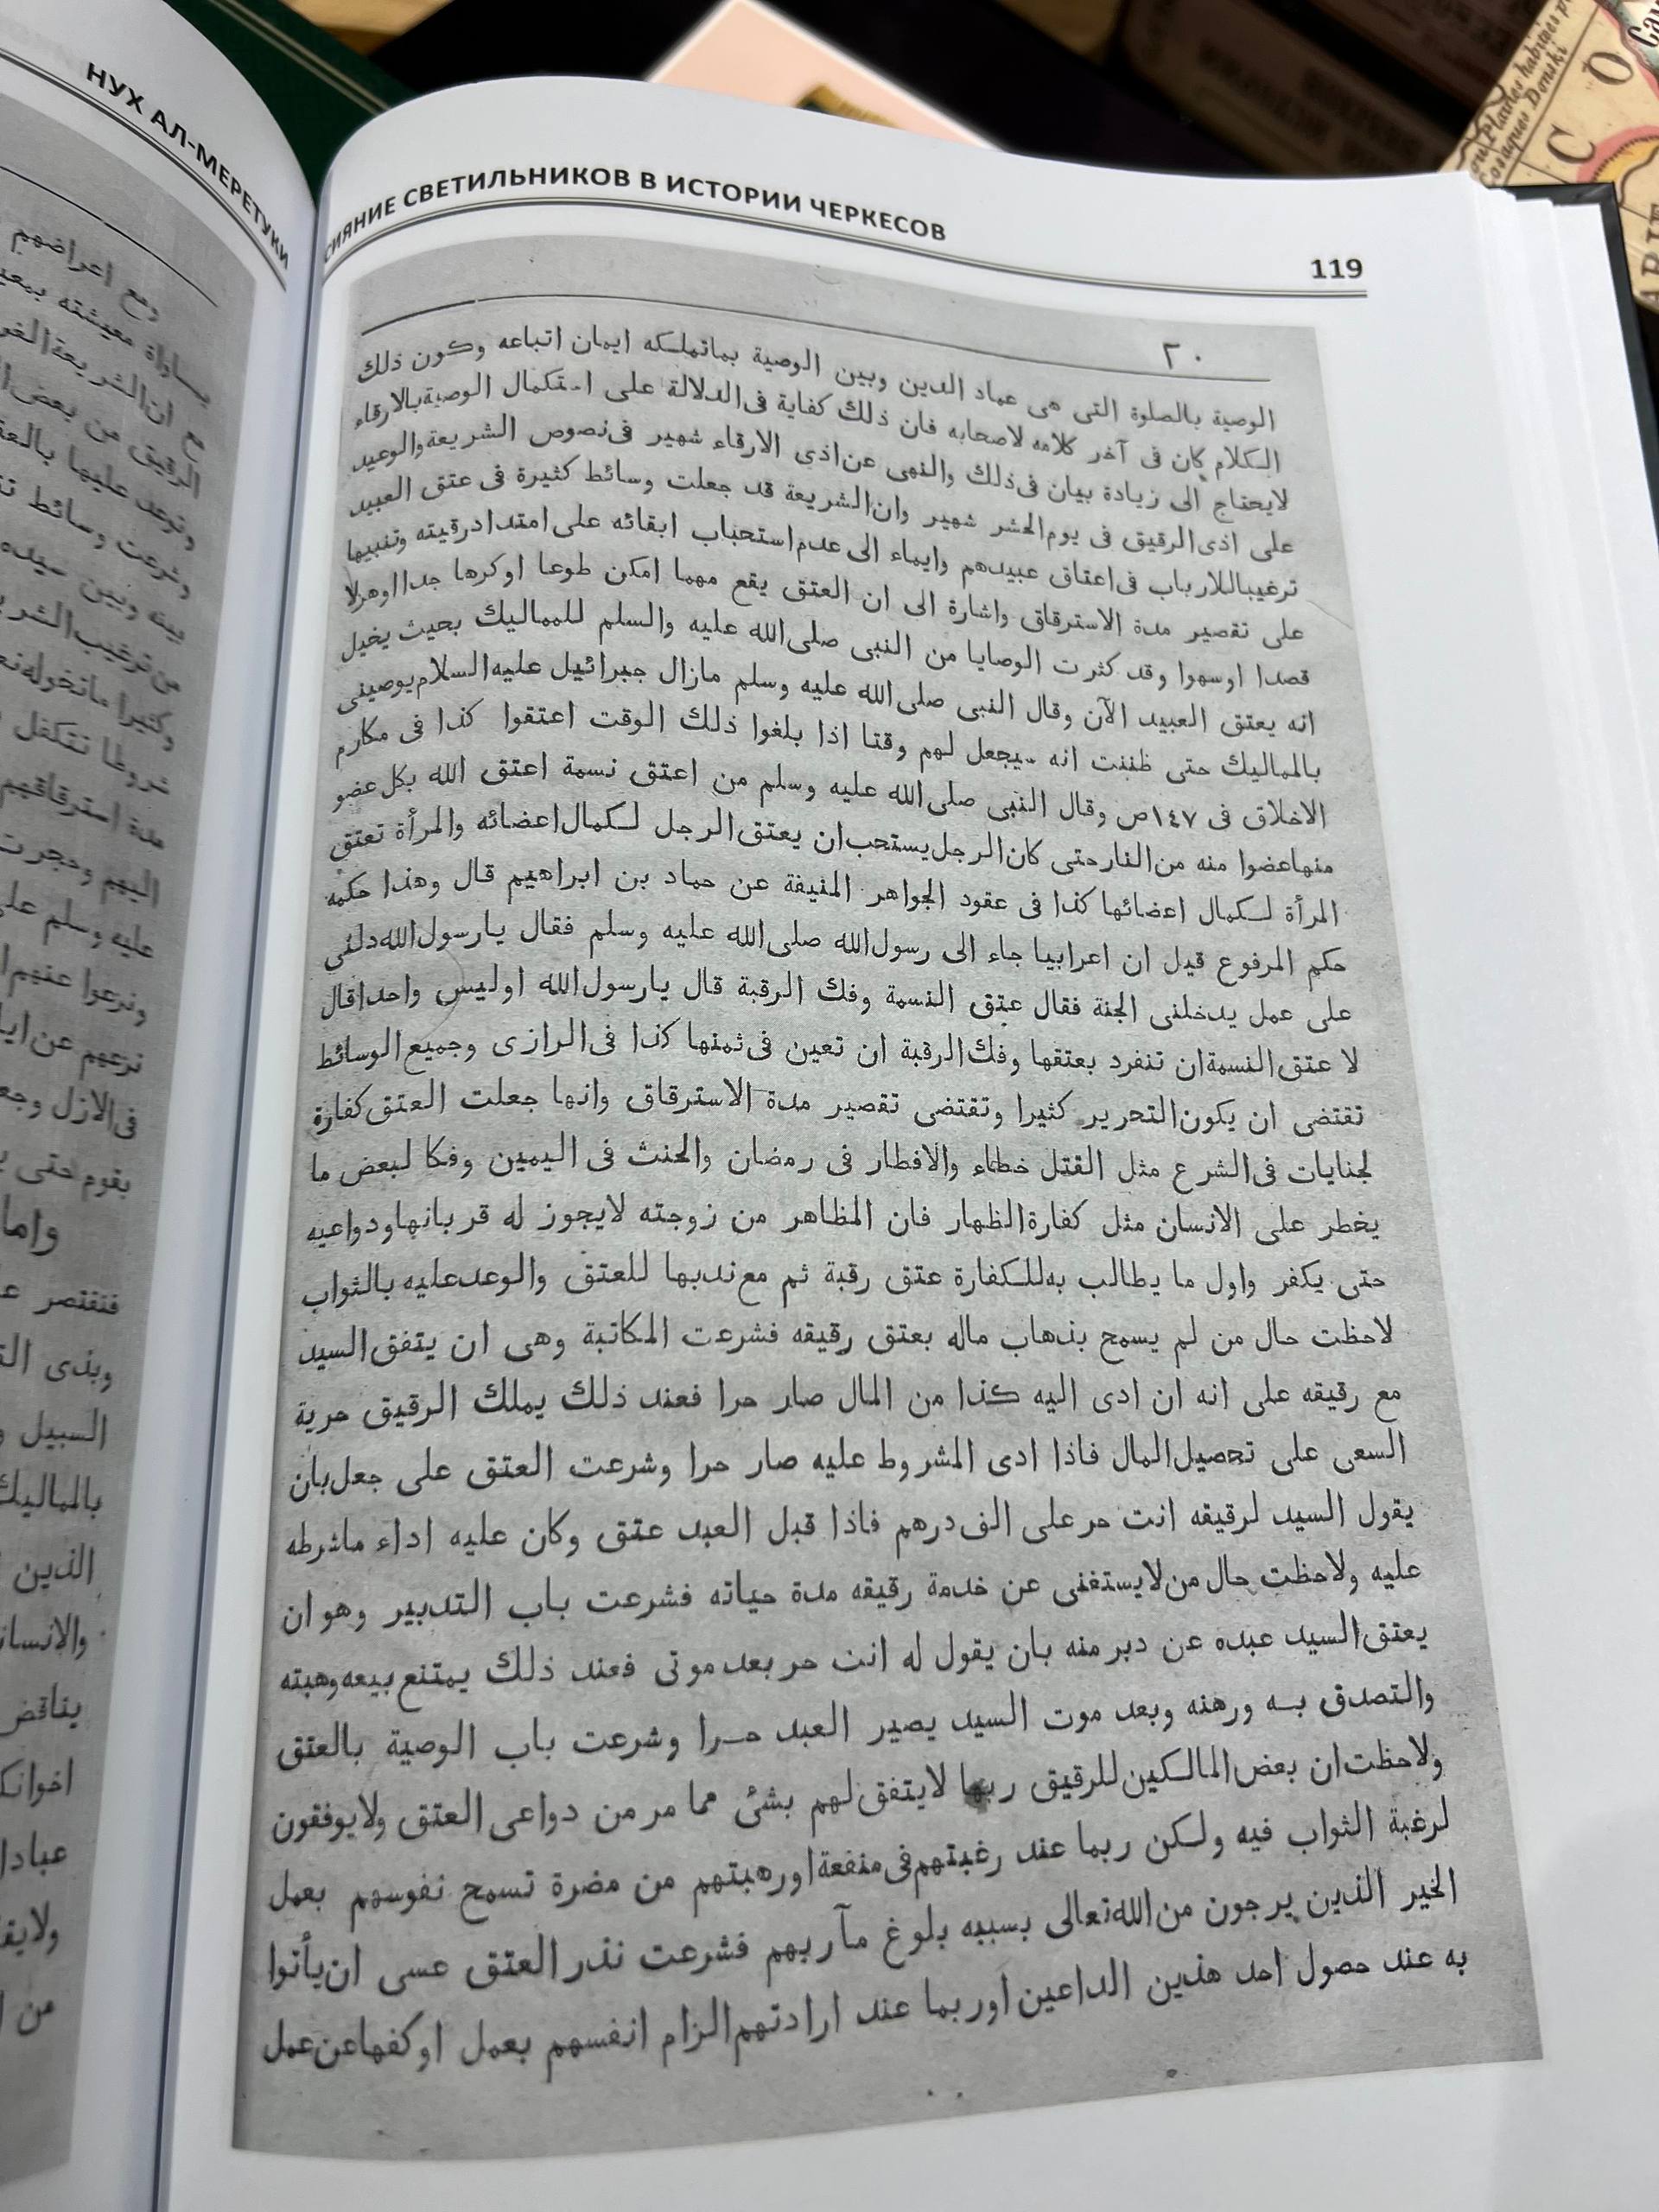 НУХ АЛ-МЕРЕТУКИ
СИЯНИЕ СВЕТИЛЬНИКОВ В ИСТОРИИ ЧЕРКЕСОВ
119
٢٠
الوصية بالصلوة التى هى عماد الدين وبين الوصية بماتملكه ايمان اتباعه وكون ذلك
الكلام كان فى آخر كلامه لاصحابه فان ذلك كفاية فى الدلالة على استكمال الوصية بالارقاء
لايحتاج الى زيادة بيان فى ذلك والنهى عن اذى الارقاء شهير فى نصوص الشريعة والوعيد
على اذى الرقيق فى يوم الحشر شهير وان الشريعة قد جعلت وسائط كثيرة فى عتق العبيد
ترغيبا للارباب فى اعتاق عبيدهم وايماء الى عدم استحباب ابقائه على امتداد رقيته وتنبيها
على تقصير مدة الاسترقاق واشارة الى ان العتق يقع مهما امكن طوعا اوكرها جدا اوهزلا
قصدا اوسهوا وقد كثرت الوصايا من النبى صلى الله عليه والسلم للمماليك بحيث يخيل
انه يعتق العبيد الآن وقال النبى صلى الله عليه وسلم مازال جبرائيل عليه السلام يوصينى
بالمماليك حتى ظننت انه سيجعل لهم وقتا اذا بلغوا ذلك الوقت اعتقوا كذا فى مكارم
الاخلاق فى ١٤٧ص وقال النبى صلى الله عليه وسلم من اعتق نسمة اعتق الله بكل عضو
منها عضوا منه من النار حتى كان الرجل يستحب ان يعتق الرجل لكمال اعضائه والمرأة تعتق
المرأة لكمال اعضائها كذا فى عقود الجواهر المنيفة عن حماد بن ابراهيم قال وهذا حكمه
حكم المرفوع قيل ان اعرابيا جاء الى رسول الله صلى الله عليه وسلم فقال يارسول الله دلنى
على عمل يدخلنى الجنة فقال عتق النسمة وفك الرقبة قال يارسول الله اوليس واحدا قال
لا عتق النسمة ان تنفرد بعتقها وفك الرقبة ان تعين فى ثمنها كذا فى الرازى وجميع الوسائط
تقتضى ان يكون التحرير كثيرا وتقتضى تقصير مدة الاسترقاق وانها جعلت العتق كفارة
لجنايات فى الشرع مثل القتل خطاء والافطار فى رمضان والحنث فى اليمين وفكا لبعض ما
يخطر على الانسان مثل كفارة الظهار فان المظاهر من زوجته لايجوز له قربانها ودواعيه
حتى يكفر واول ما يطالب به للكفارة عتق رقبة ثم مع ندبها للعتق والوعد عليه بالثواب
لاحظت حال من لم يسمح بذهاب ماله بعتق رقيقه فشرعت المكاتبة وهى ان يتفق السيد
مع رقيقه على انه ان ادى اليه كذا من المال صار حرا فعند ذلك يملك الرقيق حرية
السعى على تحصيل المال فاذا ادى المشروط عليه صار حرا وشرعت العتق على جعل بان
يقول السيد لرقيقه انت حر على الف درهم فاذا قبل العبد عتق وكان عليه اداء ماشرطه
عليه ولاحظت حال من لايستغنى عن خدمة رقيقه مدة حياته فشرعت باب التدبير وهو ان
يعتق السيد عبده عن دبر منه بان يقول له انت حر بعد موتى فعند ذلك يمتنع بيعه وهبته
والتصدق به ورهنه وبعد موت السيد يصير العبد حرا وشرعت باب الوصية بالعتق
ولاحظت ان بعض المالكين للرقيق ربما لايتفق لهم بشئ مما مر من دواعى العتق ولايوفقون
لرغبة الثواب فيه ولكن ربما عند رغبتهم فى منفعة اورهبتهم من مضرة تسمح نفوسهم بعمل
الخير الذين يرجون من الله تعالى بسببه بلوغ مآربهم فشرعت نذر العتق عسى ان يأتوا
به عند حصول احد هذين الداعين اوربما عند ارادتهم الزام انفسهم بعمل اوكفها عن عمل